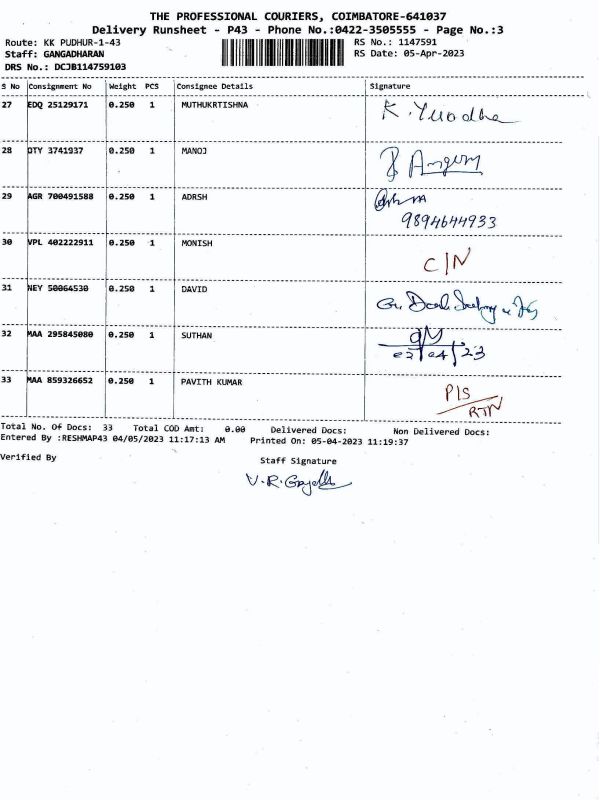 THE PROFESSIONAL COURIERS, COIMBATORE-641037
Delivery Runsheet - P43 - Phone No.:0422-3505555 - Page No.:3
Route: KK PUDHUR-1-43 RS No.: 1147591
Staff: GANGADHARAN RS Date: 05-Apr-2023
DRS No.: DCJB114759103
S No Consignment No Weight PCS Consignee Details Signature
27 EDQ 25129171 0.250 1 MUTHUKRTISHNA
28 DTY 3741937 0.250 1 MANOJ
29 AGR 700491588 0.250 1 ADRSH
9894644933
30 VPL 402222911 0.250 1 MONISH
C/N
31 NEY 50064530 0.250 1 DAVID
32 MAA 295845080 0.250 1 SUTHAN
33 MAA 859326652 0.250 1 PAVITH KUMAR
P/S
RTN
Total No. Of Docs: 33 Total COD Amt: 0.00 Delivered Docs: Non Delivered Docs:
Entered By :RESHMAP43 04/05/2023 11:17:13 AM Printed On: 05-04-2023 11:19:37
Verified By Staff Signature